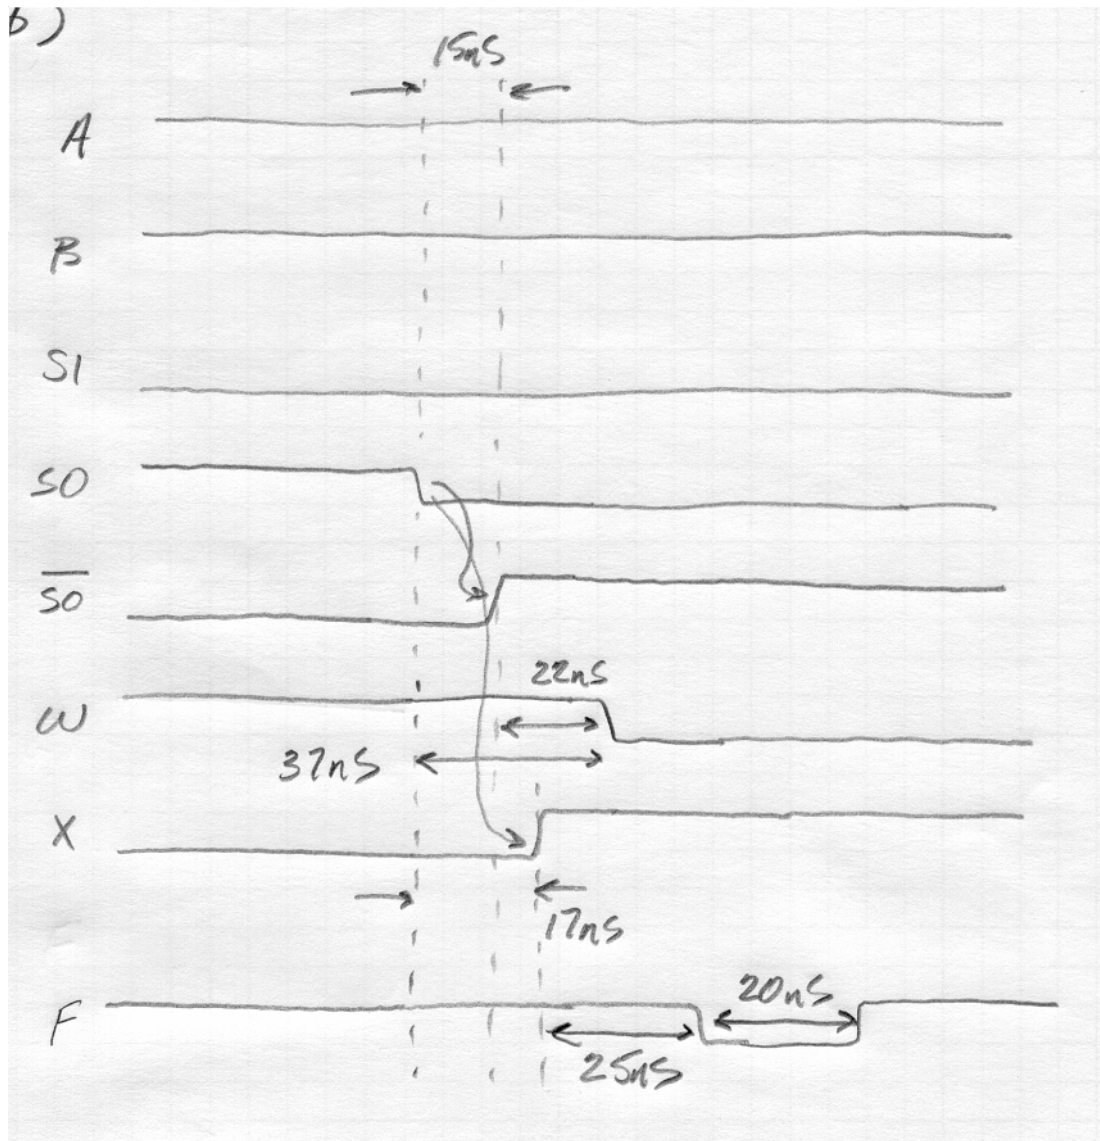 b)
15nS
A
B
S1
S0
S0
22nS
W
37nS
X
17nS
20nS
F
25nS